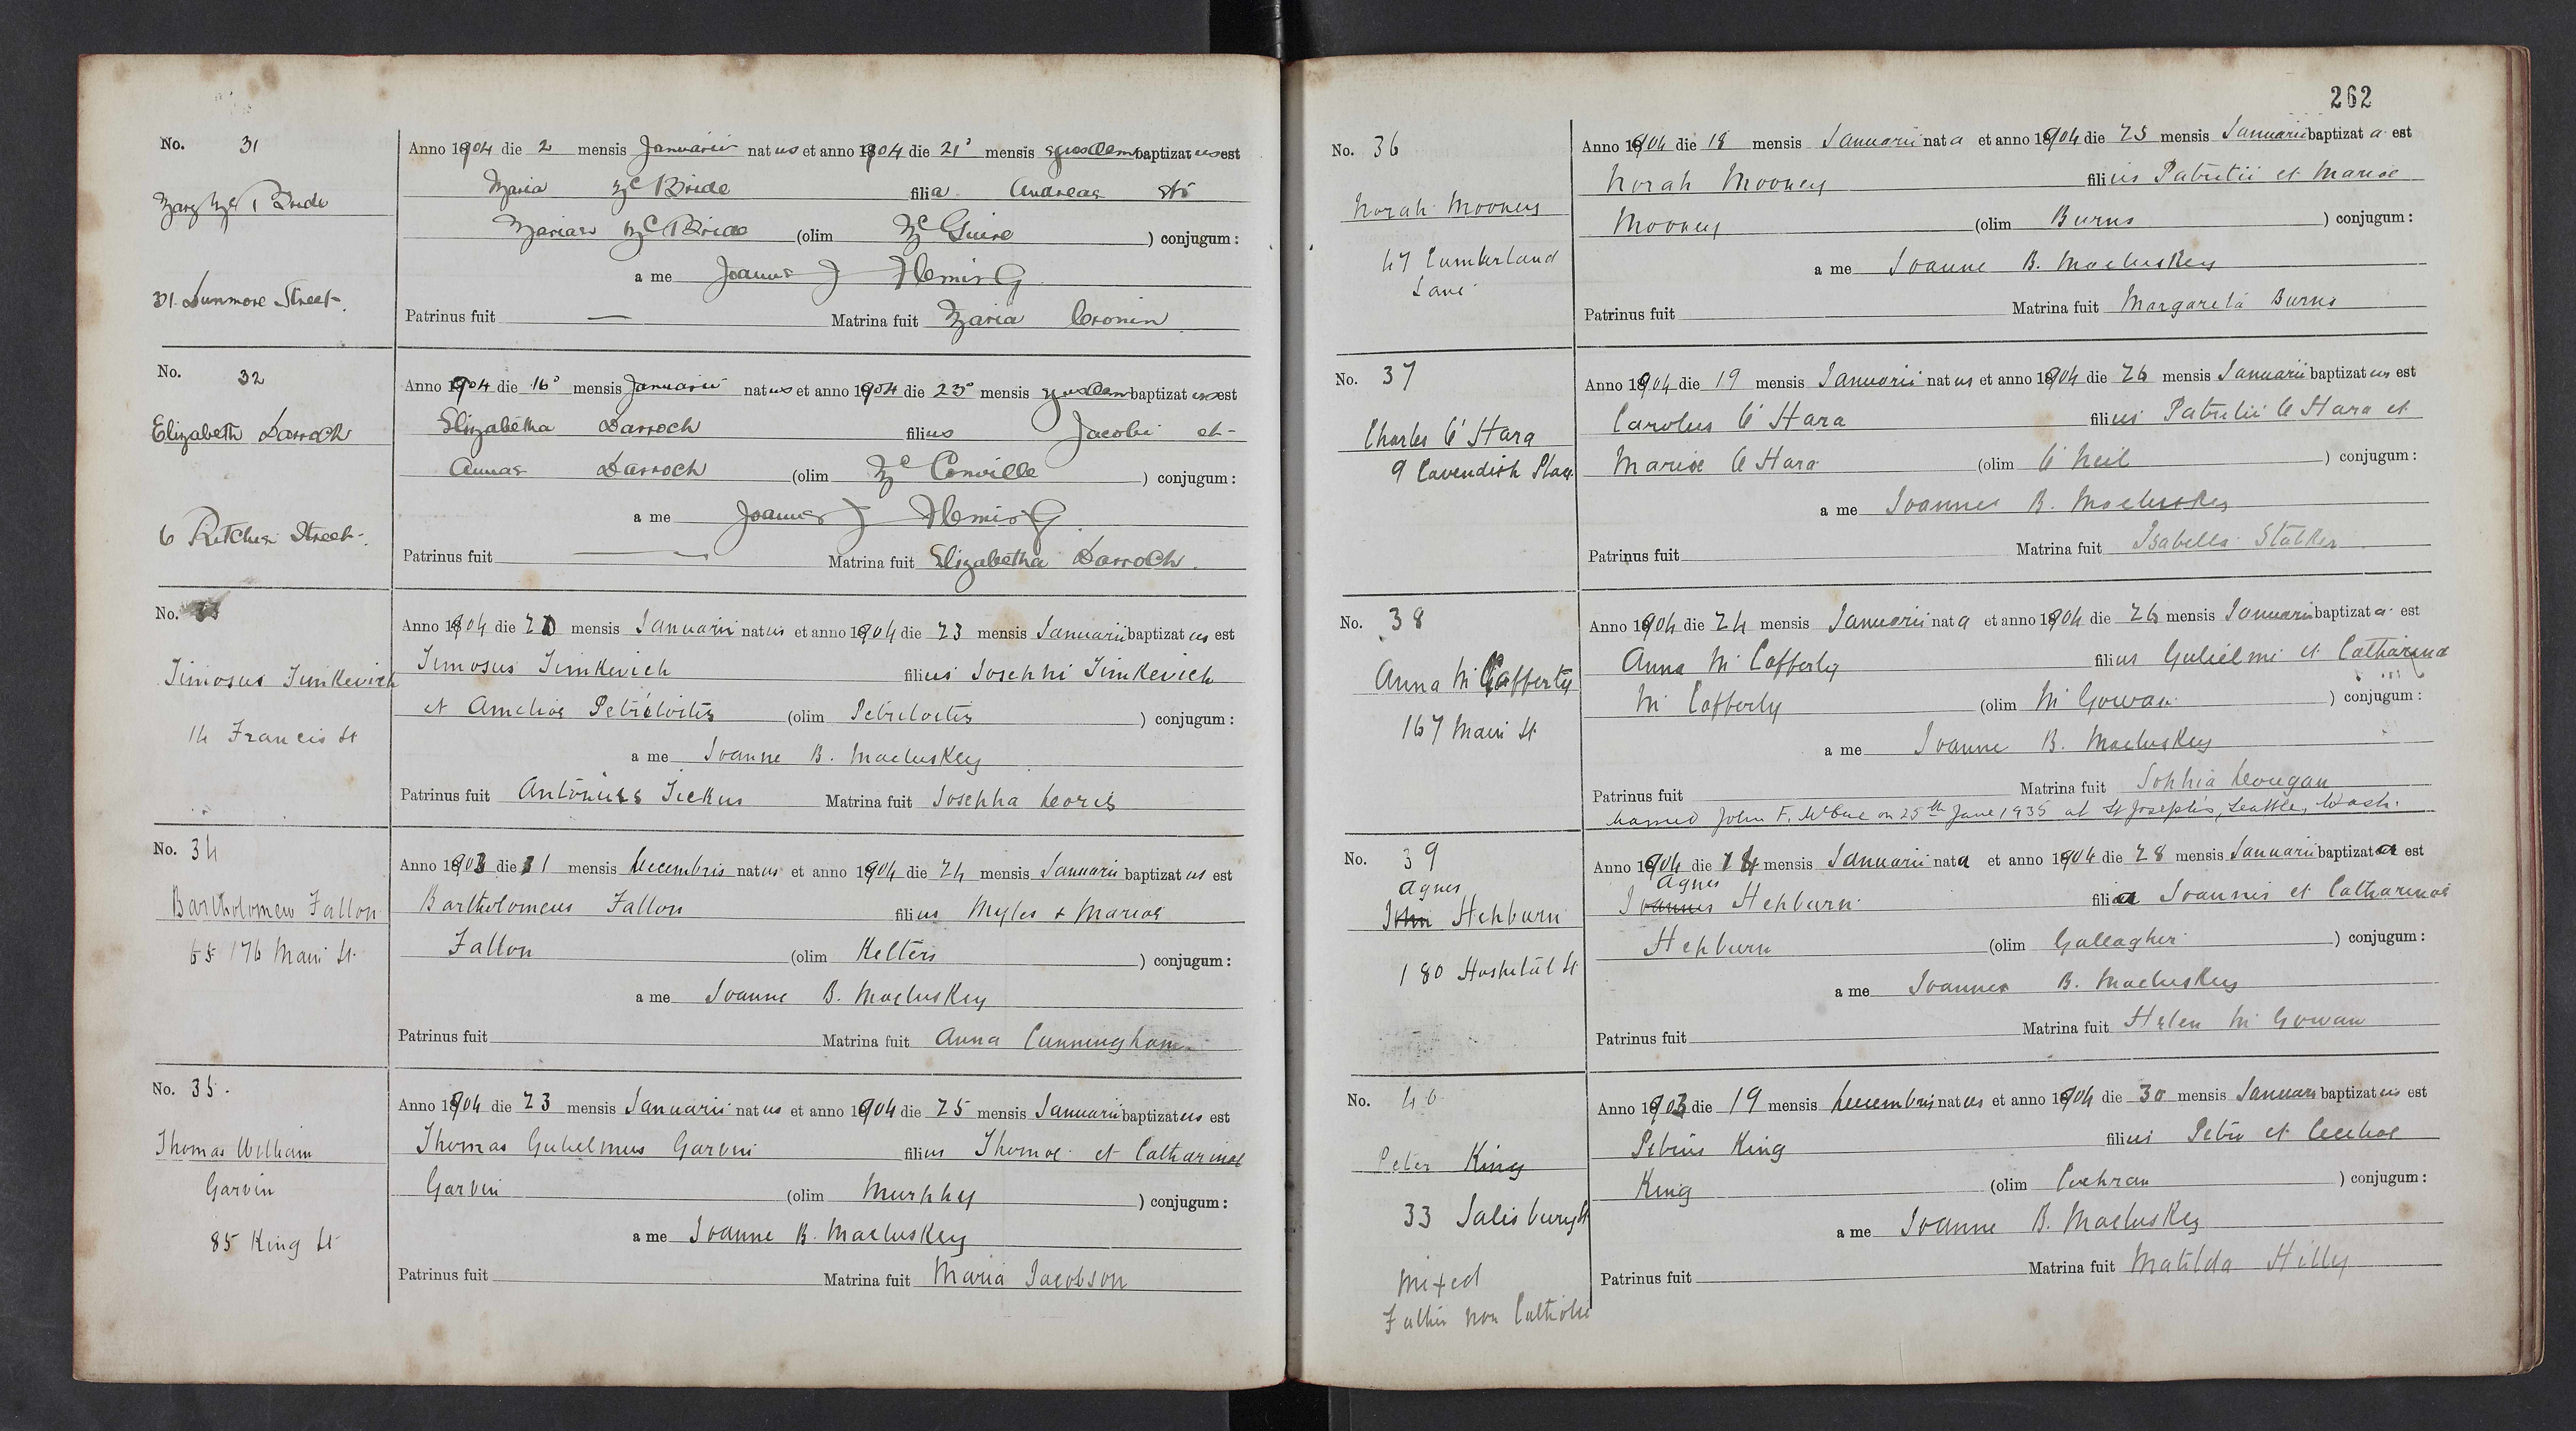 No. 31
Mary McBride
31. Dunmore Street.
Anno 1904 die 2 mensis Januarii natus et anno 1904 die 21° mensis ejusdem baptizatus est
Maria McBride filia Andreae et
Mariae McBride (olim McGuire) conjugum:
a me Joanne J
Patrinus fuit — Matrina fuit Maria Cronin
No. 32
Elizabeth Darroch
6 Street.
Anno 1904 die 16° mensis Januarii natus et anno 1904 die 23° mensis ejusdem baptizatus est
Elizabetha Darroch filius Jacobi et
Annae Darroch (olim McConville) conjugum:
a me Joannes J
Patrinus fuit — Matrina fuit Elizabetha Darroch.
No. 33
Simosus Simkevich
14 Francis St
Anno 1904 die 20 mensis Januarii natus et anno 1904 die 23 mensis Januarii baptizatus est
Simosus Simkevich filius Josephi Simkevich
et Ameliae (olim) conjugum:
a me Joanne B. Macluskey
Patrinus fuit Antonius Matrina fuit Josepha
No. 34
Bartholomew Fallon
176 Main St.
Anno 1903 die 31 mensis Decembris natus et anno 1904 die 24 mensis Januarii baptizatus est
Bartholomeus Fallon filius Myles & Mariae
Fallon (olim Kelters) conjugum:
a me Joanne B. Macluskey
Patrinus fuit Matrina fuit Anna Cunningham
No. 35.
Thomas William
Garvin
85 King St
Anno 1904 die 23 mensis Januarii natus et anno 1904 die 25 mensis Januarii baptizatus est
Thomas Gulielmus Garvin filius Thomae et Catharinae
Garvin (olim Murphy) conjugum:
a me Joanne B. Macluskey
Patrinus fuit Matrina fuit Maria Jacobson
262
No. 36
Norah Mooney
47 Cumberland
Lane
Anno 1904 die 18 mensis Januarii nata et anno 1904 die 25 mensis Januarii baptizata est
Norah Mooney filius Patritii et Mariae
Mooney (olim Burns) conjugum:
a me Joanne B. Macluskey
Patrinus fuit Matrina fuit Margareta Burns
No. 37
Charles O'Hara
9 Cavendish Place
Anno 1904 die 19 mensis Januarii natus et anno 1904 die 26 mensis Januarii baptizatus est
Carolus O'Hara filius Patritii O'Hara et
Mariae O'Hara (olim O'Neil) conjugum:
a me Joannes B. Macluskey
Patrinus fuit Matrina fuit Isabella Stalker
No. 38
Anna McCafferty
167 Main St
Anno 1904 die 24 mensis Januarii nata et anno 1904 die 26 mensis Januarii baptizata est
Anna McCafferty filius Gulielmi et Catharina
McCafferty (olim McGowan) conjugum:
a me Joanne B. Macluskey
Patrinus fuit Matrina fuit Sophia Deougan
Married John F. McCue on 25th June 1935 at St Joseph's, Seattle, Wash.
No. 39
Agnes
John Hepburn
180 Hospital St
Anno 1904 die 14 mensis Januarii nata et anno 1904 die 28 mensis Januarii baptizata est
Agnes
Joannes Hepburn filia Joannis et Catharinae
Hepburn (olim Gallagher) conjugum:
a me Joannes B. Macluskey
Patrinus fuit Matrina fuit Helen McGowan
No. 40
Peter King
33 Salisbury St
Mixed
Father non Catholic
Anno 1903 die 19 mensis Decembris natus et anno 1904 die 30 mensis Januarii baptizatus est
Petrus King filius Petri et Ceciliae
King (olim Cochran) conjugum:
a me Joanne B. Macluskey
Patrinus fuit Matrina fuit Matilda Hilly